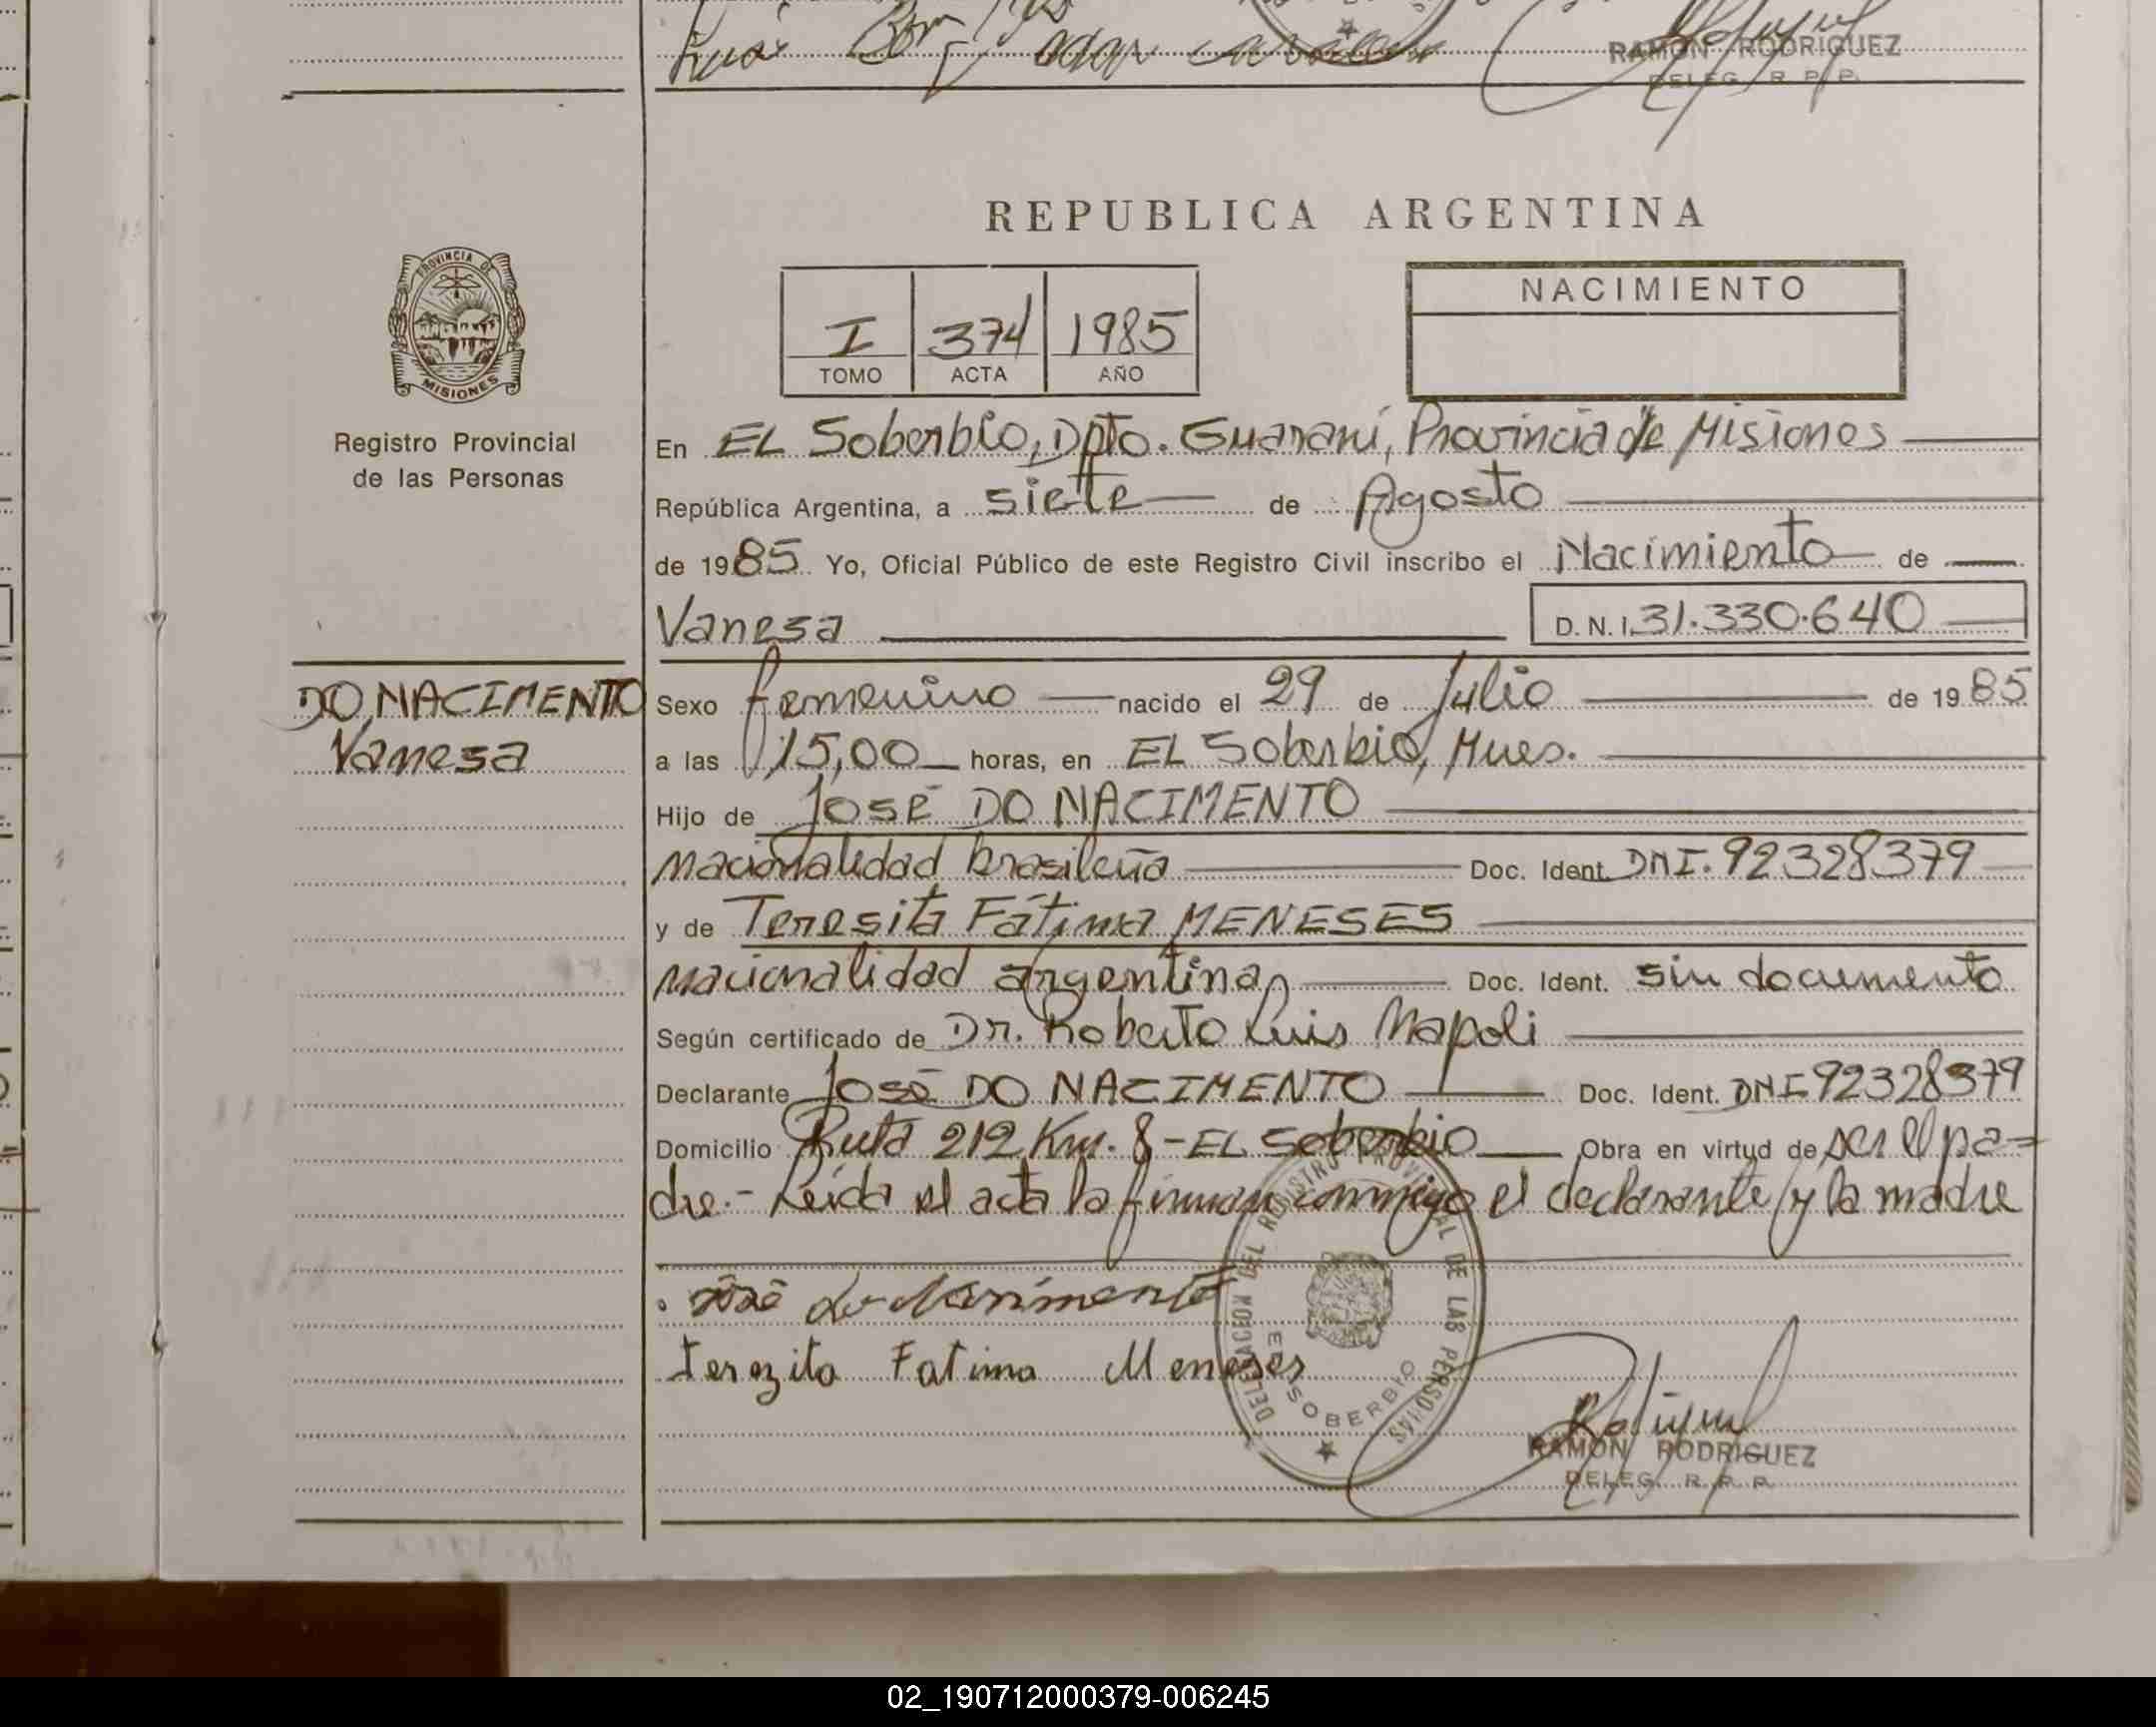 RAMON RODRIGUEZ
DELEG. R. P. P.
REPUBLICA ARGENTINA
PROVINCIA DE
MISIONES
Registro Provincial
de las Personas
I 374 1985
TOMO ACTA AÑO
NACIMIENTO
En EL Soberbio, Dpto. Guaraní, Provincia de Misiones
República Argentina, a siete de Agosto
de 1985 Yo, Oficial Público de este Registro Civil inscribo el Nacimiento de
Vanesa D. N. I. 31.330.640
DO NACIMENTO
Vanesa
Sexo femenino nacido el 29 de Julio de 1985
a las 15,00 horas, en EL Soberbio, Mnes.
Hijo de JOSÉ DO NACIMENTO
nacionalidad brasileña Doc. Ident. DNI. 92328379
y de Teresita Fátima MENESES
nacionalidad argentina Doc. Ident. sin documento
Según certificado de Dr. Roberto Luis Napoli
Declarante José DO NACIMENTO Doc. Ident. DNI 92328379
Domicilio Ruta 212 Km. 8 - EL Soberbio Obra en virtud de ser el pa=
dre.- Leída el acta la firman conmigo el declarante y la madre
José do Nacimento
Terezita Fatima Meneses
DELEGACION DEL REGISTRO PROVINCIAL DE LAS PERSONAS
EL SOBERBIO
RAMON RODRIGUEZ
DELEG. R. P. P.
02_190712000379-006245